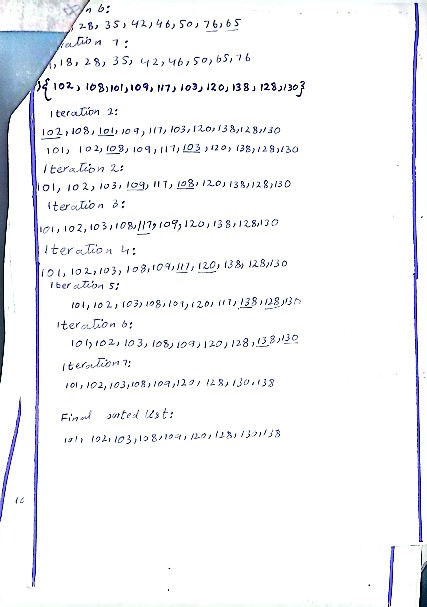 n 6:
28, 35, 42, 46, 50, 76, 65
ration 7:
18, 28, 35, 42, 46, 50, 65, 76
){102, 108, 101, 109, 117, 103, 120, 138, 128, 130}
Iteration 1:
102, 108, 101, 109, 117, 103, 120, 138, 128, 130
101, 102, 108, 109, 117, 103, 120, 138, 128, 130
Iteration 2:
101, 102, 103, 109, 117, 108, 120, 138, 128, 130
Iteration 3:
101, 102, 103, 108, 117, 109, 120, 138, 128, 130
Iteration 4:
101, 102, 103, 108, 109, 117, 120, 138, 128, 130
Iteration 5:
101, 102, 103, 108, 109, 120, 117, 138, 128, 130
Iteration 6:
101, 102, 103, 108, 109, 120, 128, 138, 130
Iteration 7:
101, 102, 103, 108, 109, 120, 128, 130, 138
Final sorted List:
101, 102, 103, 108, 109, 120, 128, 130, 138